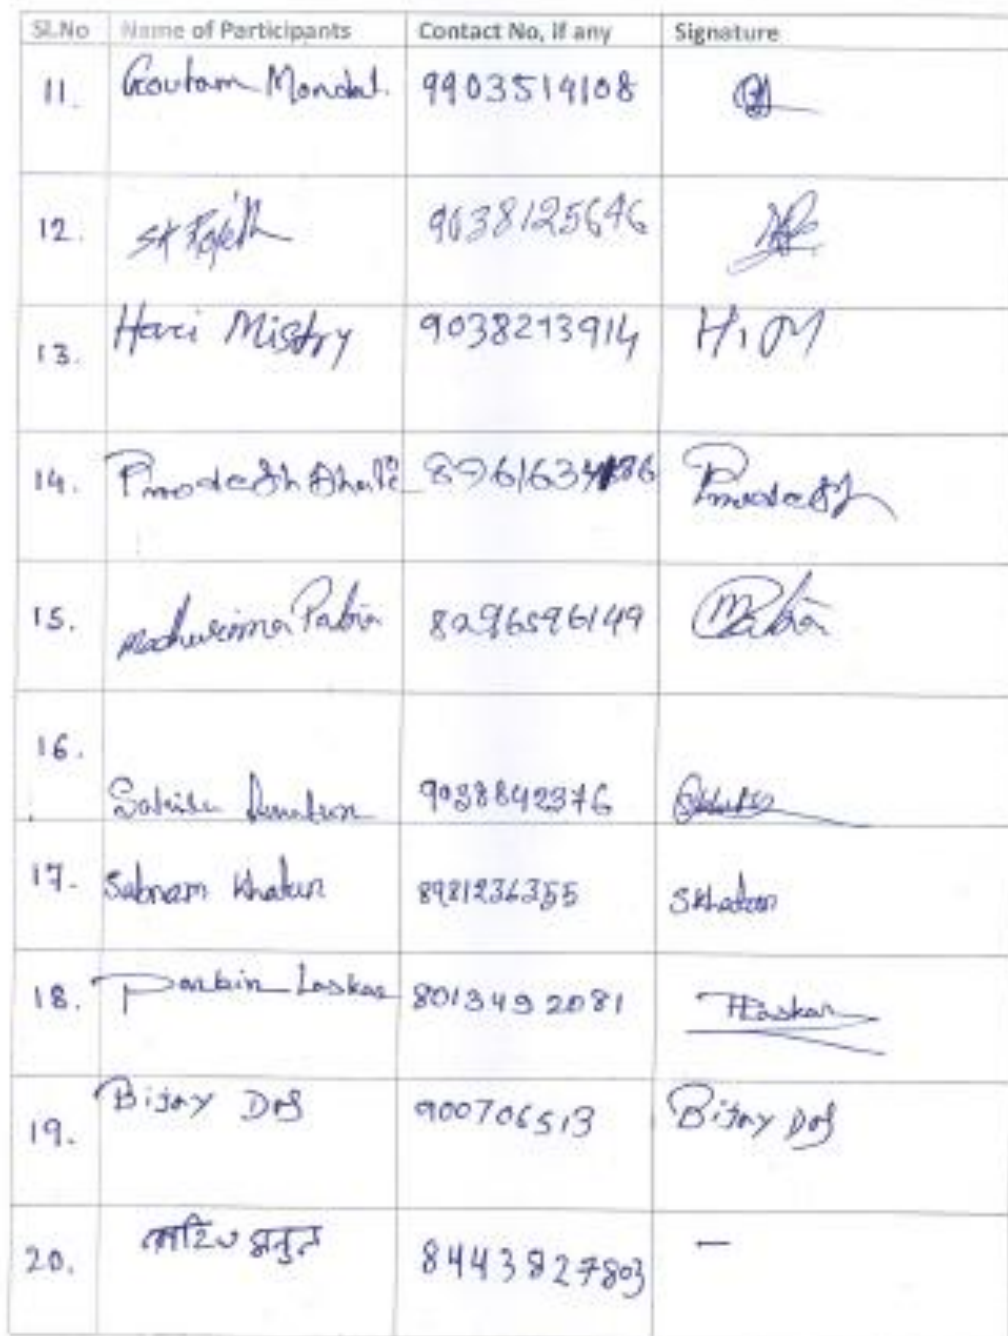 Sl.No Name of Participants Contact No, if any Signature
11. Goutam Mondal. 9903514108
12. SK 9038125646
13. Hari Mistry 9038213914 H.M
14. 
15. Madhurima Patra 8296596149 Patra
16. 9038842376
17. Sabnam Khatun 8981236355 SKhatun
18. Parbin Laskar 8013492081 PLaskar
19. Bijay Das 900706513 Bijay Das
20. 8443827803 —